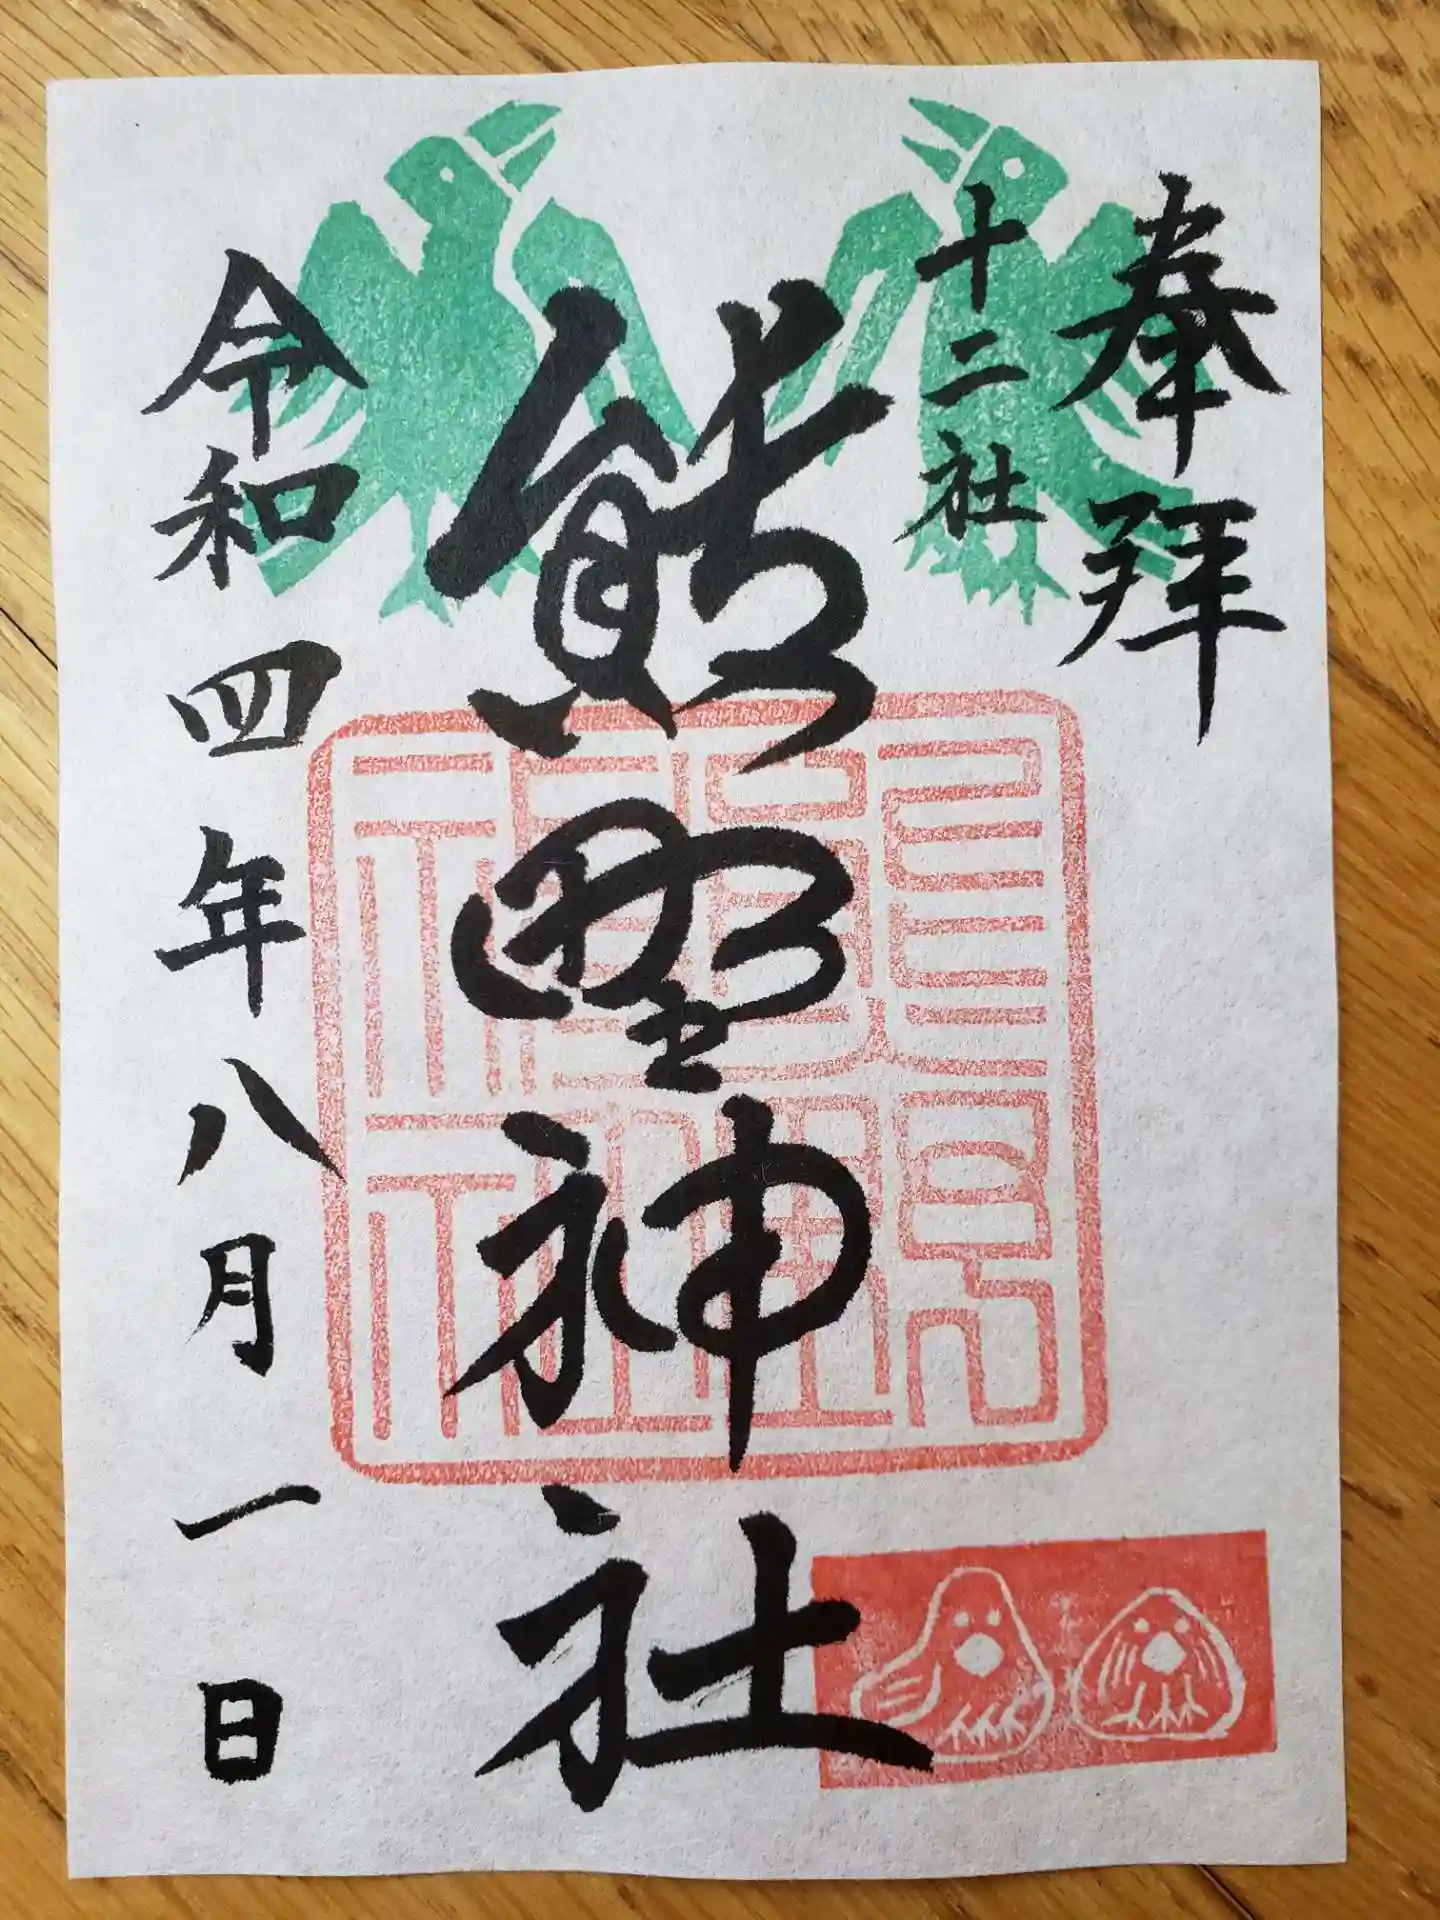 奉拝
十二社
熊野神社
令和四年八月一日